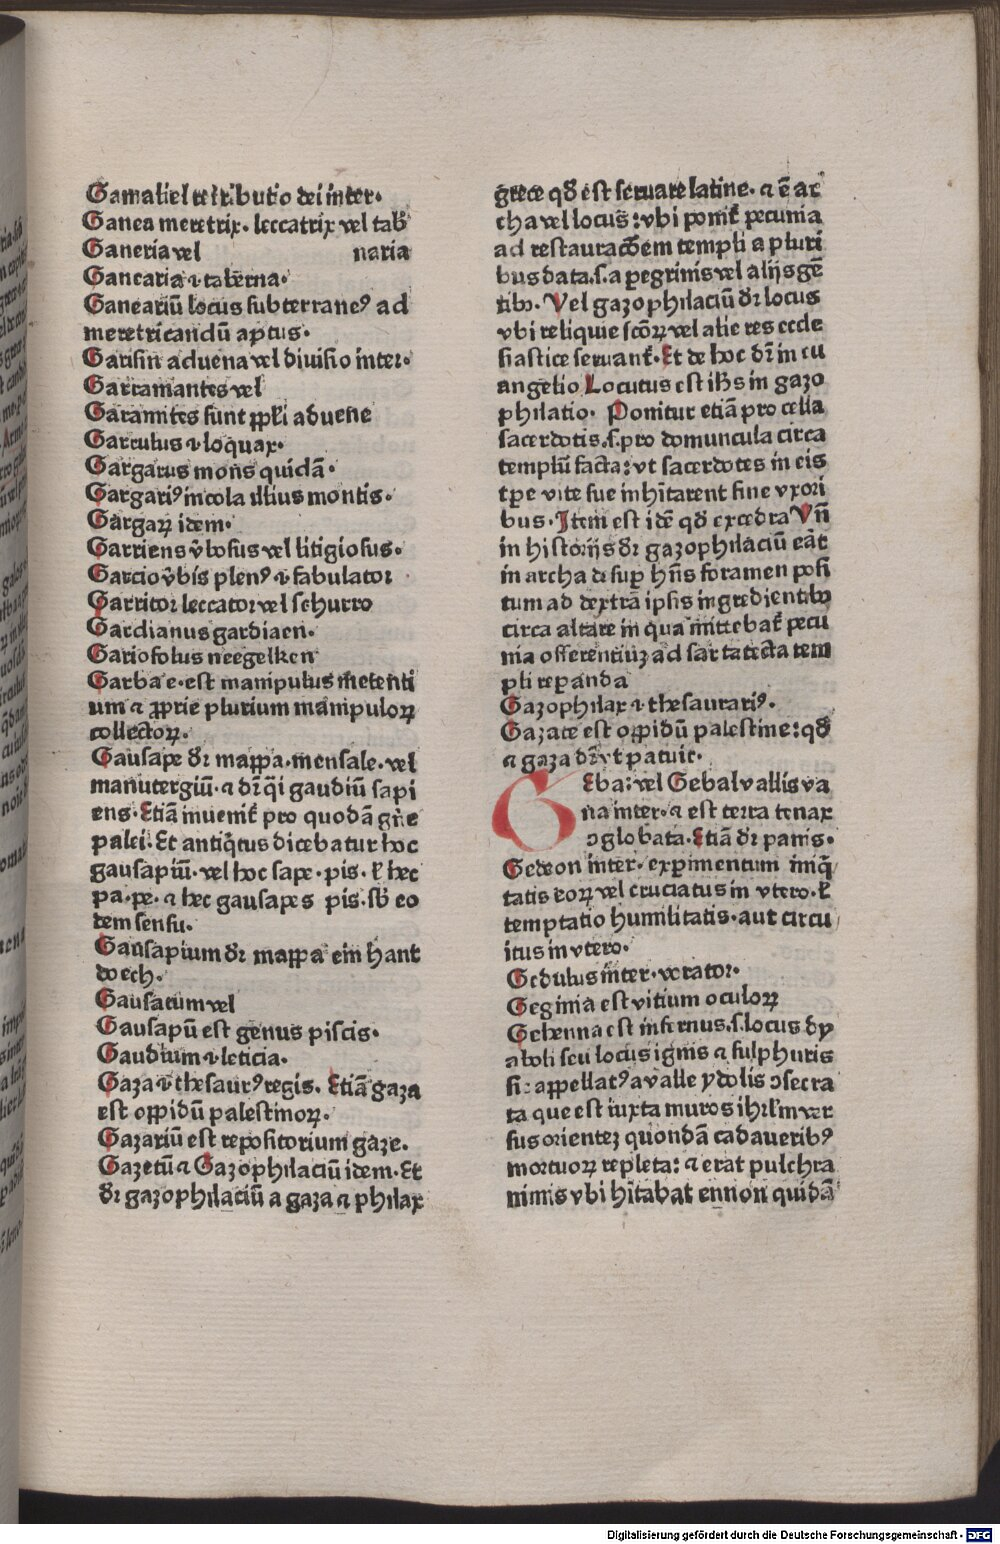 Gamaliel retributio dei inter·
Ganea meretrix· leccatrix vel tab̄
Ganeria vel naria
Gancaria ⁊ taberna·
Ganeariū locus subterraneꝰ ad
meretricandū aptus·
Garisin aduena vel diuisio inter·
Garramantes vel
Garamites sunt ppli aduene
Garrulus ⁊ loquax·
Gargarus mons quidā·
Gargariꝰ incola illius montis·
Gargaꝝ idem·
Garriens v̄bosus vel litigiosus·
Garcio v̄bis plenꝰ ⁊ fabulator
Garritor leccator vel schurro
Gardianus gardiaen·
Gariofolus neegelken
Garba e· est manipulus metenti
um ⁊ ꝓprie plurium manipuloꝝ
collectoꝝ·
Gausape dr mappa· mensale· vel
manutergiū· ⁊ dr̄ q̄i gaudiū sapi
ens· Etiā inuenit᷑ pro quodā gn̄e
palei· Et antiq̄tus dicebatur hoc
gausapiū· vel hoc sape· pis· ł hec
pa· pe· ⁊ hec gausapes pis· sb̄ eo
dem sensu·
Gausapium dr mappa ein hant
doech·
Gausatum vel
Gausapū est genus piscis·
Gaudium ⁊ leticia·
Gaza ⁊ thesaurꝰ regis· Etiā gaza
est oppidū palestinoꝝ·
Gazariū est repositorium gaze·
Gazetū ⁊ Gazophilaciū idem· Et
dr gazophilaciū a gaza ⁊ philax
grece qd̄ est seruare latine· ⁊ ē ar
cha vel locus: vbi ponit᷑ pecunia
ad restauracōem templi a pluri
bus data· s· a peregrinis vel alijs gē
tibꝰ· Vel gazophilaciū dr locus
vbi reliquie scōꝝ vel alie res eccle
siastice seruant᷑· Et de hoc dr̄ in eu
angelio Locutus est ihs in gazo
philatio· Ponitur etiā pro cella
sacerdotis· s· pro domuncula circa
templū facta: vt sacerdotes in eis
tp̄e vite sue inhītarent sine vxori
bus· Item est idē qd̄ excedra Vn̄
in historijs dr gazophilaciū erāt
in archa desup hn̄s foramen posi
tum ad dextrā ipsis ingredientibꝰ
circa altare in qua mittebat᷑ pecu
nia offerentiūꝫ ad sartatecta tem
pli reꝑanda
Gazophilax ⁊ thesaurariꝰ·
Gazate est oppidū palestine: qd̄
⁊ gaza dr̄ vt patuit·
Geba: vel Gebal vallis va
na inter· ⁊ est terra tenax
ↄglobata· Etiā dr panis·
Gedeon inter· exꝑimentum iniq̄
tatis eoꝝ vel cruciatus in vtero· ł
temptatio humilitatis· aut circu
itus in vtero·
Gedulus inter· vorator·
Geginia est vitium oculoꝝ
Gehenna est infernus· s· locus dy
aboli seu locus ignis ⁊ sulphuris
sic appellatꝰ a valle ydolis ↄsecra
ta que est iuxta muros ihrl̄m ver
sus orientez quondā cadaueribꝰ
mortuoꝝ repleta: ⁊ erat pulchra
nimis vbi hītabat ennon quidā
Digitalisierung gefördert durch die Deutsche Forschungsgemeinschaft · DFG